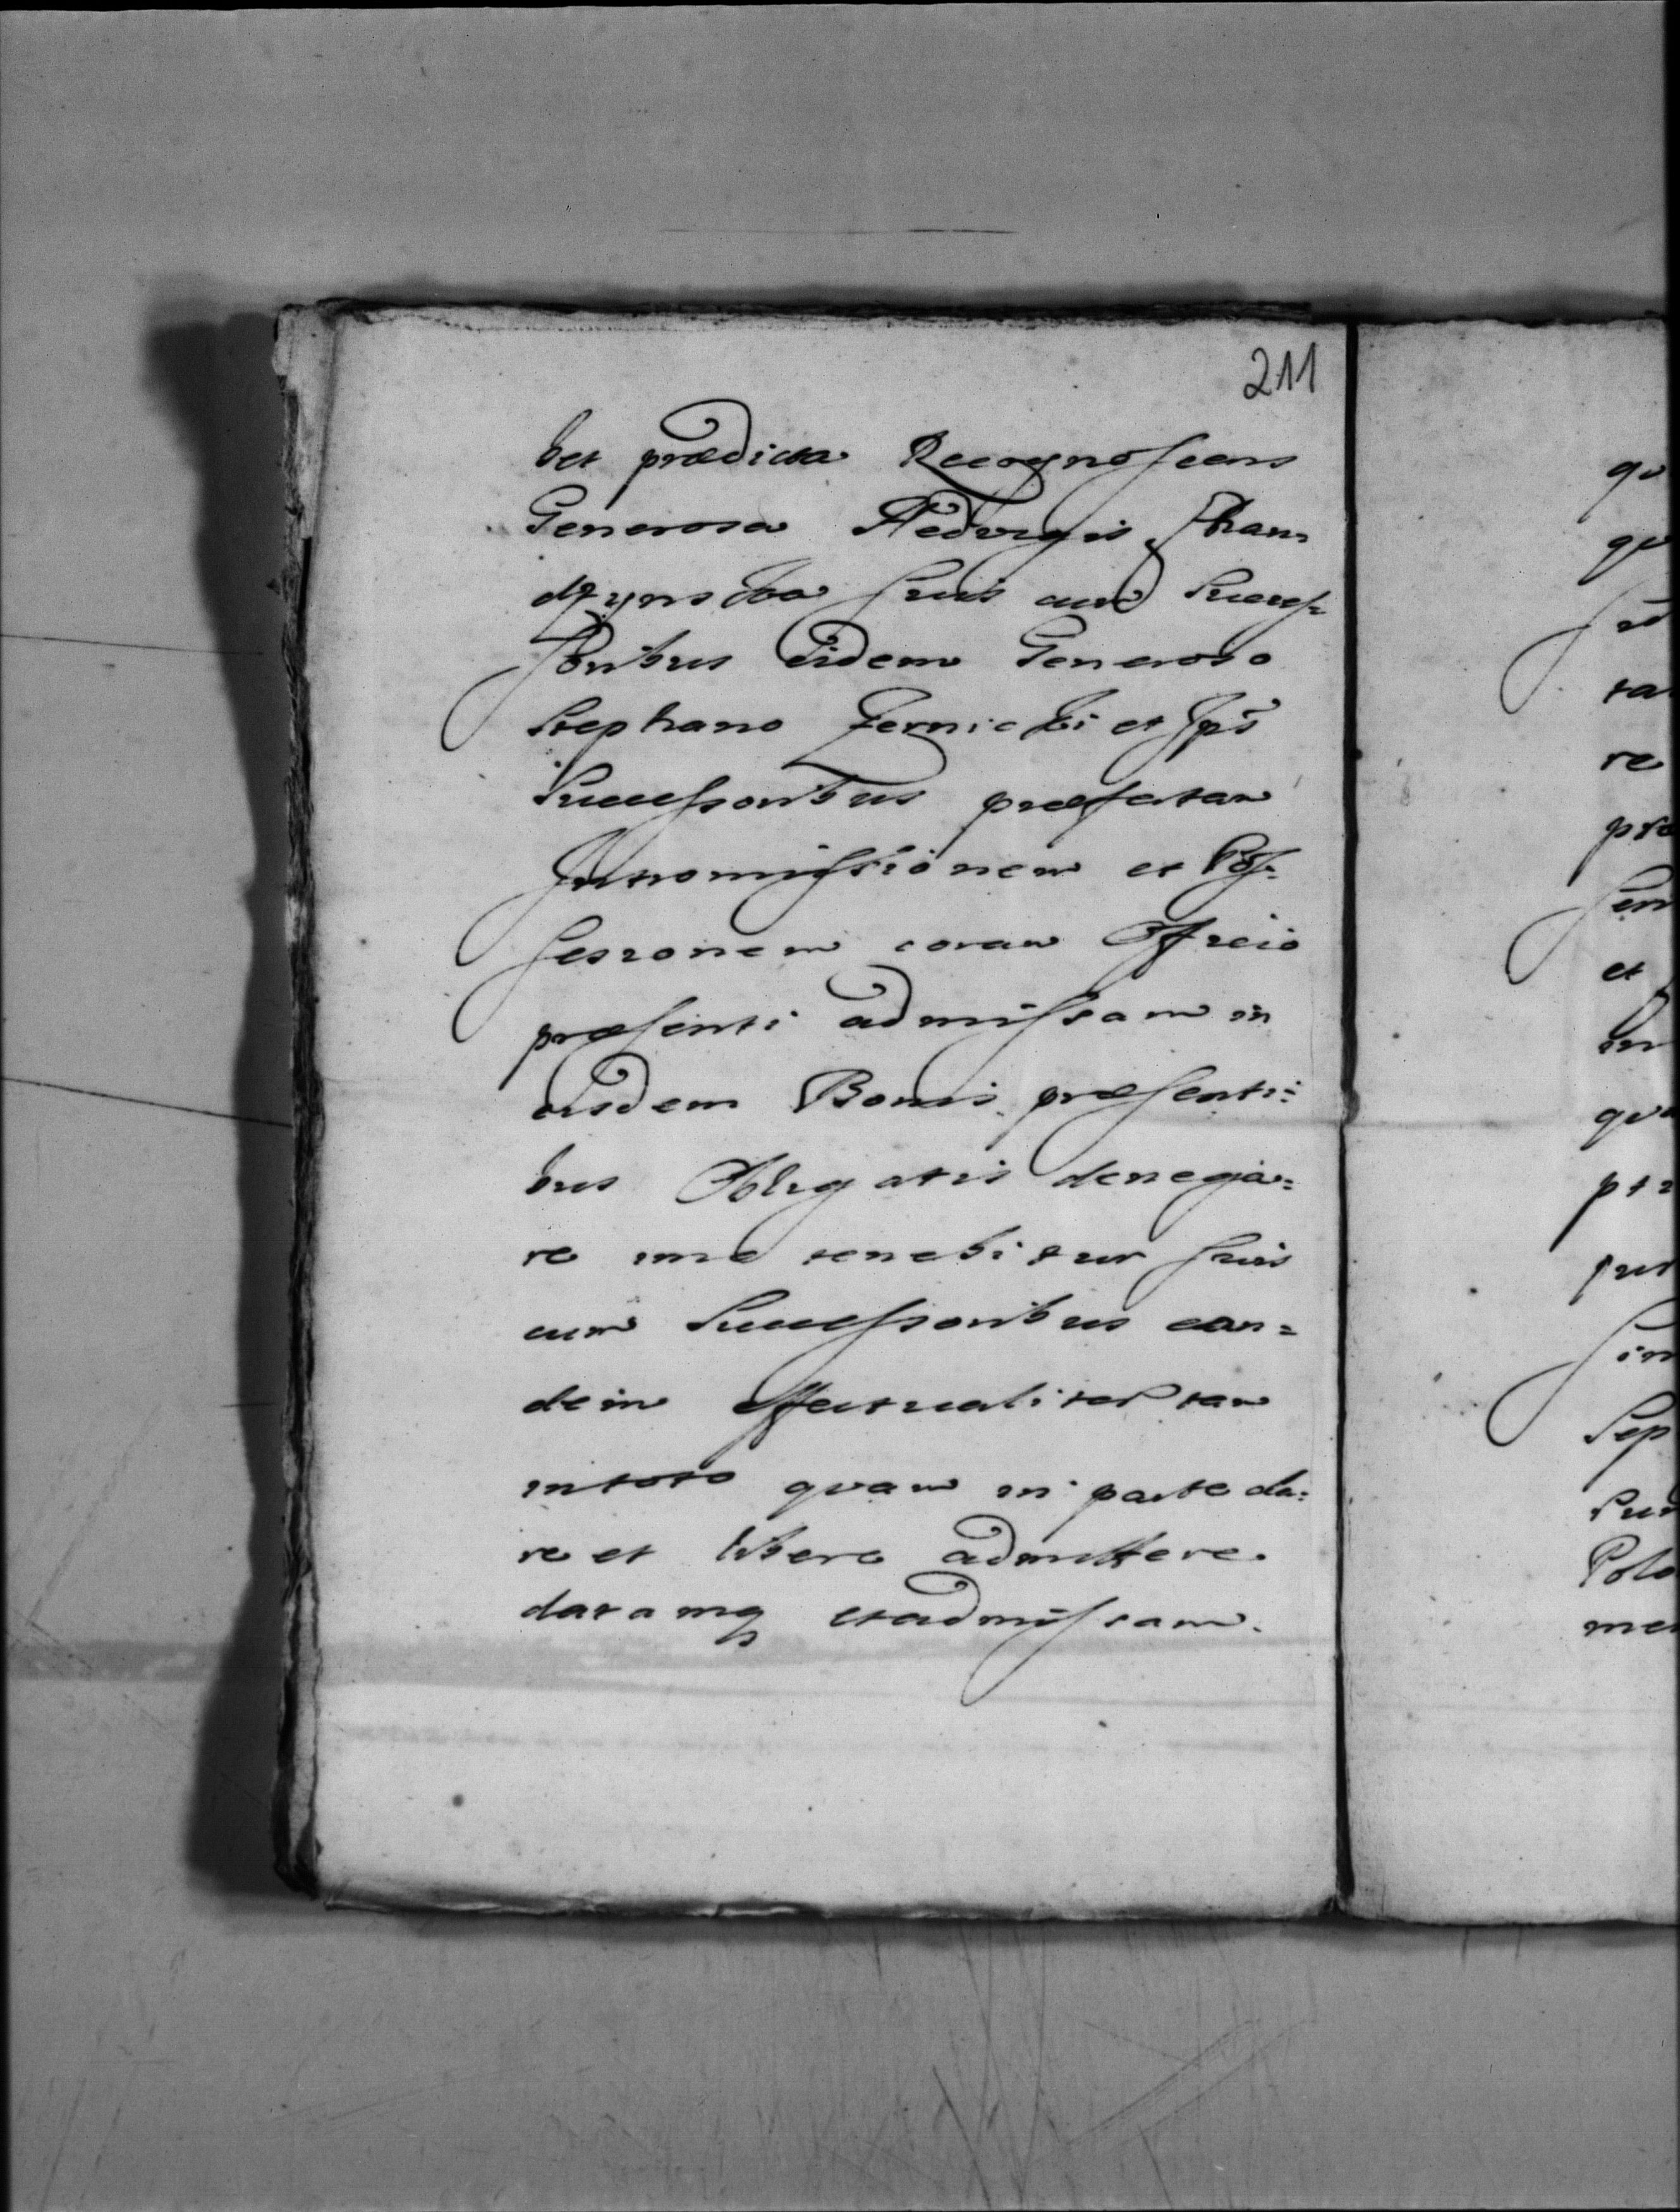 211
bet prædicta Recognoscens
Generosa Hedvigis Chan=
dzynska suis cum Success=
soribus Eidem Generoso
Stephano Zernicki et Ips
Successoribus præfatam
Intromissionem et Pos=
sessionem coram Officio
præsenti admissam in
eisdem Bonis præsenti=
bus Obligatis denega=
re imo tenebitur suis
cum Successoribus ean=
dem effectualiter tam
in toto quam in parte da=
re et libere admittere.
datamq et admissam.
qu
qu
ta
re
pro
et
in
qua
Sep
Polo
me